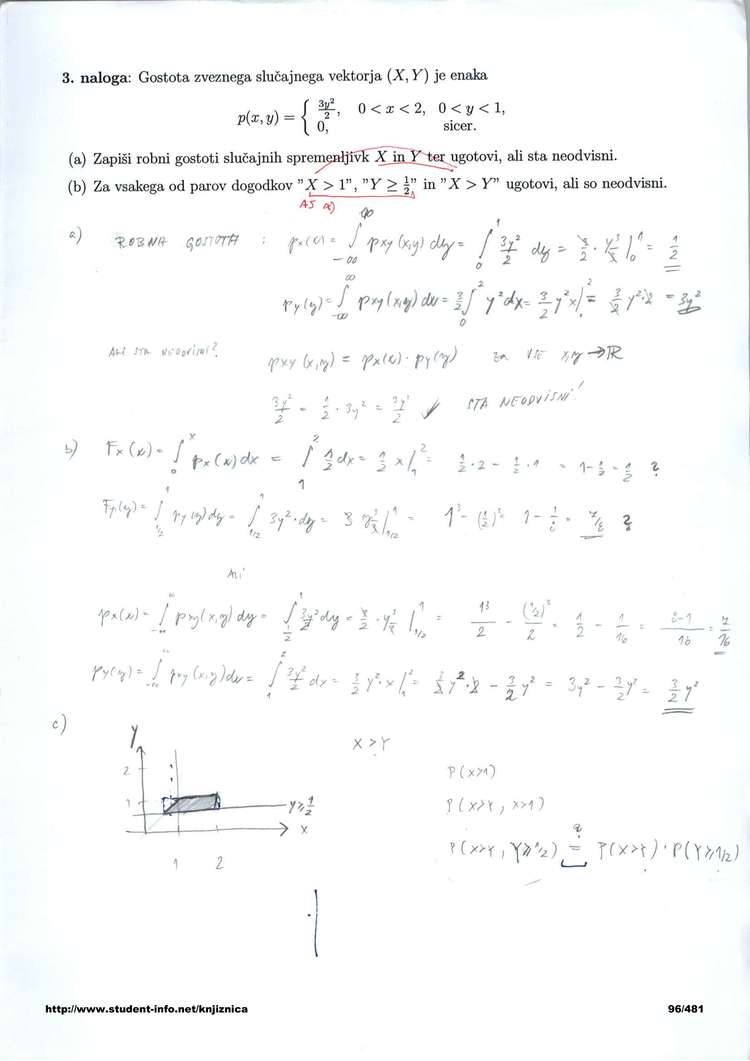 3. naloga: Gostota zveznega slučajnega vektorja (X, Y) je enaka
p(x, y) = { 3y²/2, 0 < x < 2, 0 < y < 1,
0, sicer.
(a) Zapiši robni gostoti slučajnih spremenljivk X in Y ter ugotovi, ali sta neodvisni.
(b) Za vsakega od parov dogodkov "X > 1", "Y ≥ 1/2" in "X > Y" ugotovi, ali so neodvisni.
a) ROBNA GOSTOTA : px(x) = ∫_{-∞}^{∞} pxy(x,y) dy = ∫_0^1 3y²/2 dy = 3/2 · y³/3 |_0^1 = 1/2
py(y) = ∫_{-∞}^{∞} pxy(x,y) dx = 3/2 ∫_0^2 y² dx = 3/2 y² x |^2 = 3/2 y² · 2 = 3y²
ALI STA NEODVISNI? pxy(x,y) = px(x) · py(y) za VSE x,y → ℝ
3y²/2 = 1/2 · 3y² = 3y²/2 ✓ STA NEODVISNI!
b) Fx(x) = ∫_0^x px(x) dx = ∫_1^2 1/2 dx = 1/2 x |_1^2 = 1/2 · 2 - 1/2 · 1 = 1 - 1/2 = 1/2 ?
Fy(y) = ∫_{1/2}^1 py(y) dy = ∫_{1/2}^1 3y² · dy = 3 y³/3 |_{1/2}^1 = 1³ - (1/2)³ = 1 - 1/8 = 7/8 ?
ALI
px(x) = ∫_{-∞}^{∞} pxy(x,y) dy = ∫_{1/2}^1 3y²/2 dy = 3/2 · y³/3 |_{1/2}^1 = 1³/2 - (1/2)³/2 = 1/2 - 1/16 = 8-1/16 = 7/16
py(y) = ∫_{-∞}^{∞} pxy(x,y) dx = ∫_1^2 3y²/2 dx = 3/2 y² · x |_1^2 = 3/2 y² · 2 - 3/2 y² = 3y² - 3/2 y² = 3/2 y²
c)
Y
X > Y
2
P(X>1)
1
Y ≥ 1/2
P(X>Y, X>1)
X
P(X>Y, Y≥1/2) =? P(X>Y) · P(Y≥1/2)
1 2
http://www.student-info.net/knjiznica
96/481